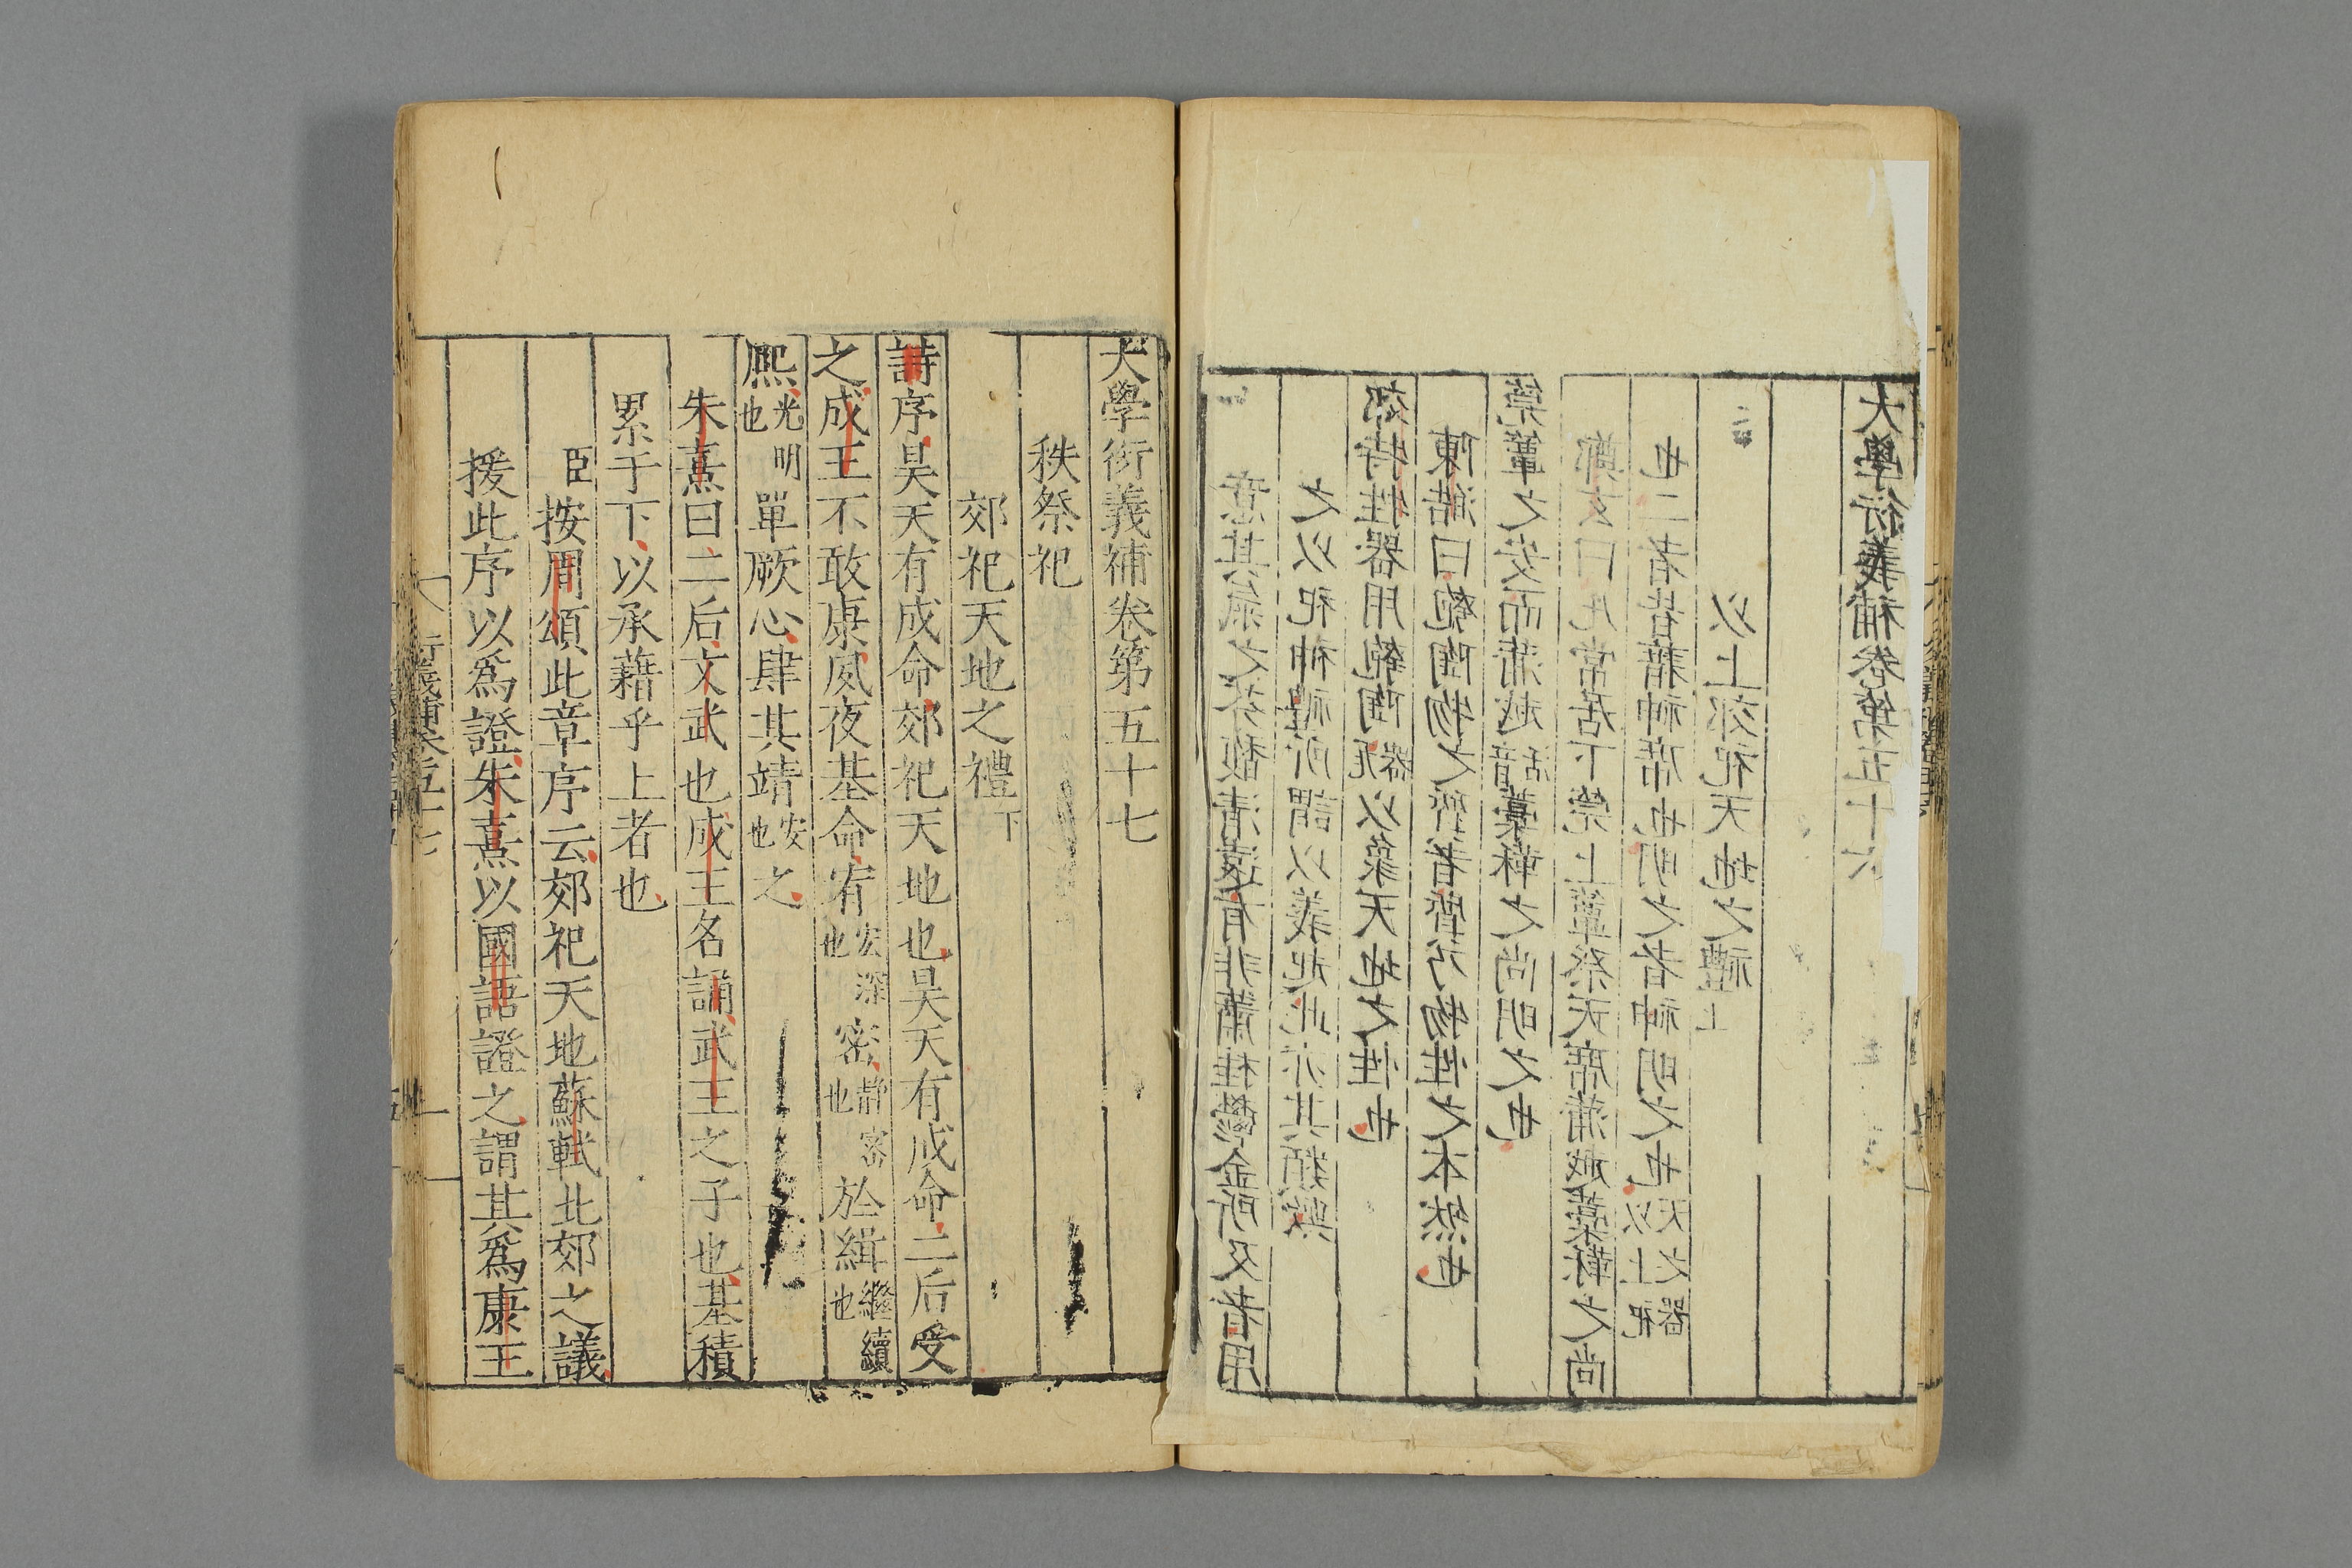 意其氣之芬馥清遠有非蕭桂鬱金所及者用
之以祀神禮所謂以義起此亦其類歟
郊特牲器用匏陶瓦器以象天地之性也
陳澔曰匏陶物之質者皆乃物性之本然也
莞簟之安而蒲越音活藁鞂之尚明之也
鄭玄曰凡常居下莞上簟祭天席蒲越藁鞂之尚
也二者皆藉神席也明之者神明之也以上祀天之器
以上郊祀天地之禮上
大學衍義補卷第五十六
大學衍義補卷第五十七
秩祭祀
郊祀天地之禮下
詩序昊天有成命郊祀天地也昊天有成命二后受
之成王不敢康夙夜基命宥宏深也密靜密也於緝繼續也
熙光明也單厥心肆其靖安也之
朱熹曰二后文武也成王名誦武王之子也基積
累于下以承藉乎上者也
臣按周頌此章序云郊祀天地蘇軾北郊之議
援此序以為證朱熹以國語證之謂其為康王